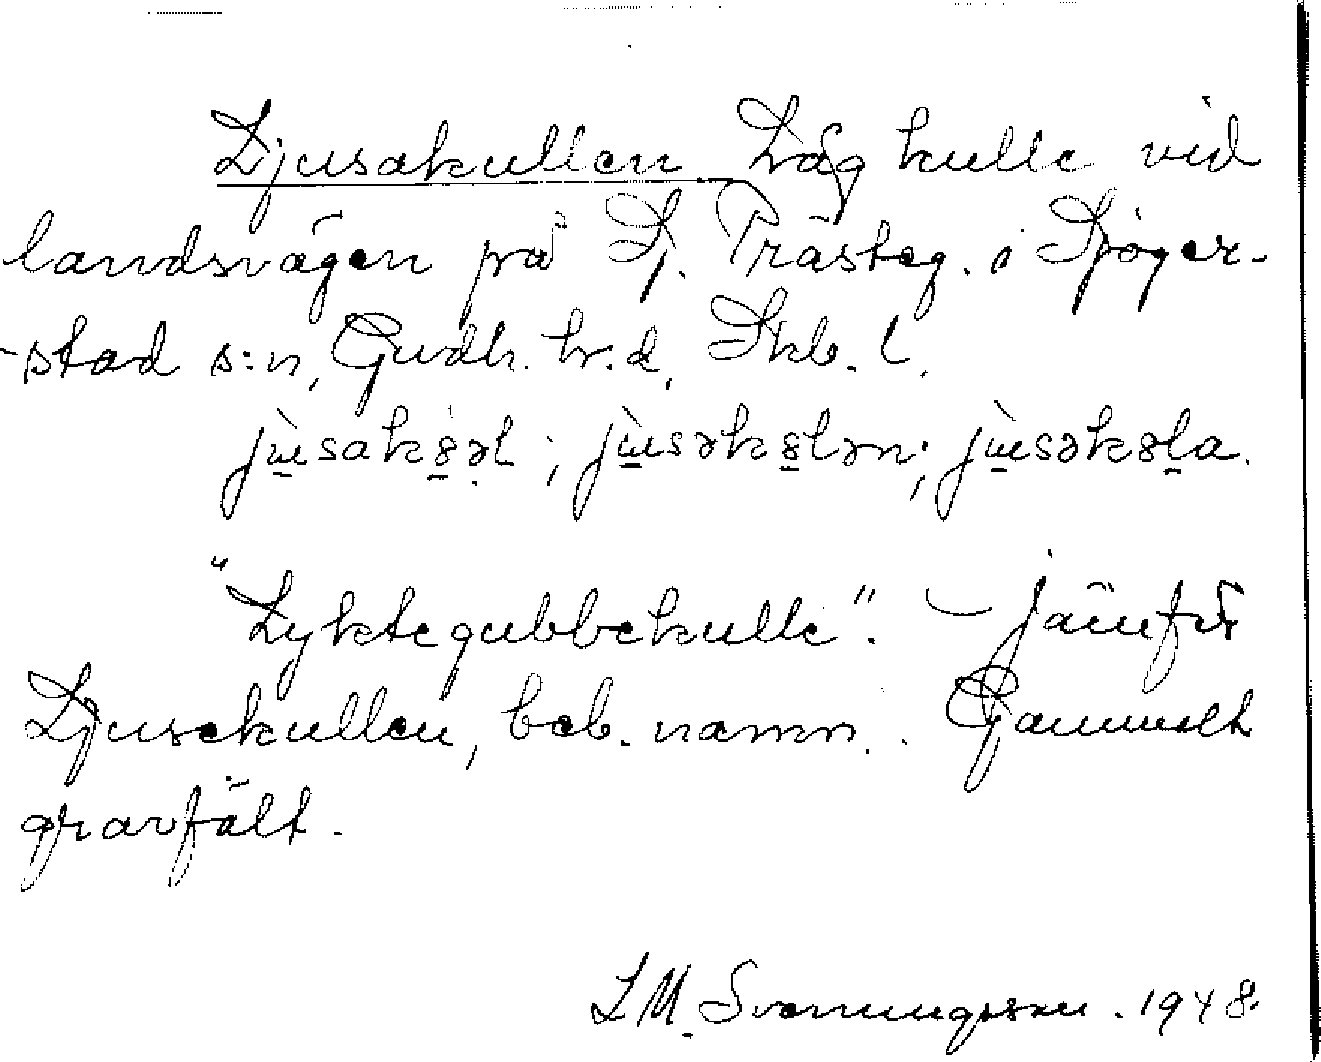 Ljusakullen Låg kulle vid
landsvägen på Sj. Prästeg. i Sjöger-
-stad s:n, Gudh. h:d, Skb. l.
"Lyktegubbekulle". – Jämför
Ljusekullen, beb. namn. Gammalt
gravfält.
L M. Svenungsson. 1948.